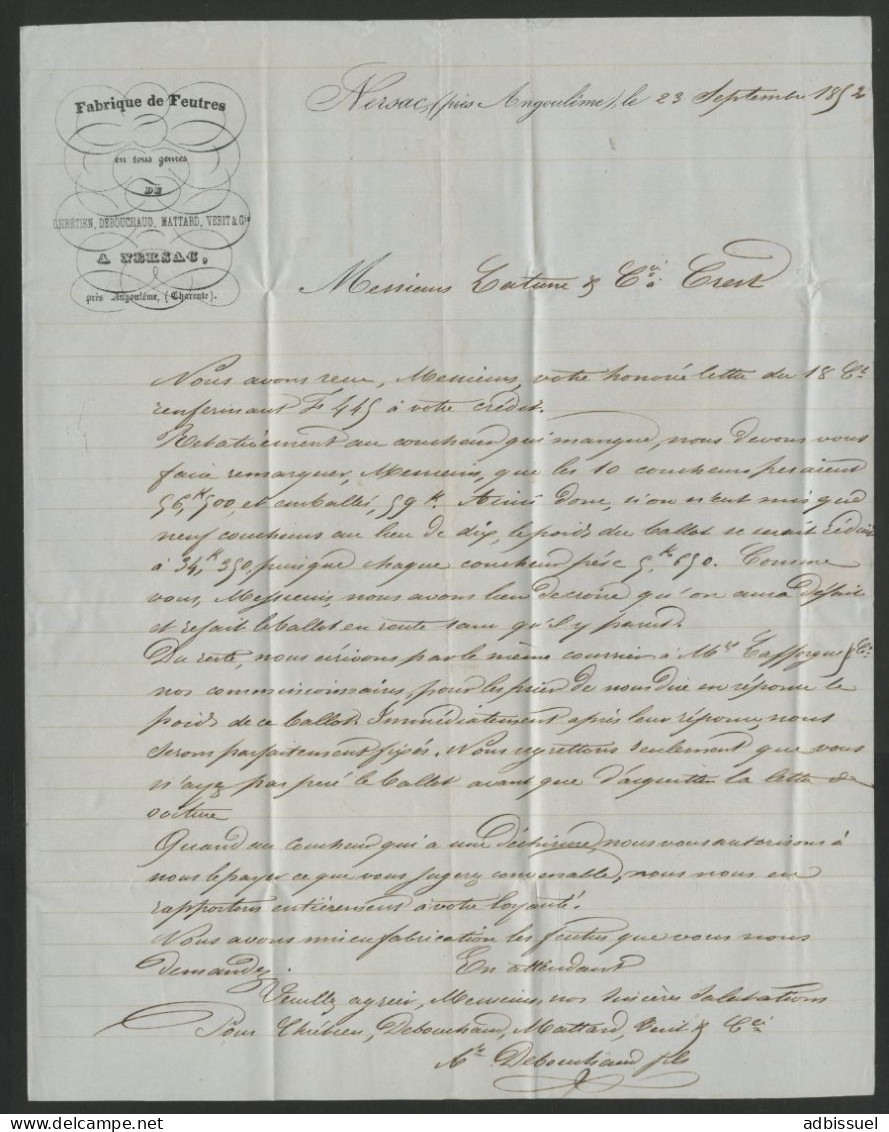 Fabrique de Feutres
en tous genres
DE
CHRÉTIEN, DEBOUCHAUD, MATTARD, VERIT & Cie
A NERSAC,
près Angoulême, (Charente).
Nersac, (près Angoulême), le 23 Septembre 1852
Messieurs Latune & Cie à Crest
Nous avons reçu, Messieurs, votre honorée lettre du 18 Ct
renfermant F 445 à votre crédit.
Relativement au coucheur qui manque, nous devons vous
faire remarquer, Messieurs, que les 10 coucheurs pesaient
56,k500, et emballés, 59k. Ainsi donc, si on n'eut mis que
neuf coucheurs au lieu de dix, le poids du ballot se serait réduit
à 34,k350, puisque chaque coucheur pèse 5,k650. Comme
vous, Messieurs, nous avons lieu de croire qu'on aura défait
et refait le ballot en route sans qu'il y parut.
Du reste, nous écrivons par le même courrier à Mrs Lafforgue & Cie
nos commissionnaires, pour les prier de nous dire en réponse le
poids de ce ballot. Immédiatement après leur réponse, nous
serons parfaitement fixés. Nous regrettons seulement que vous
n'ayez pas pesé le ballot avant que d'acquitter la lettre de
voiture
Quand au coucheur qui a une déchirure, nous vous autorisons à
nous le payer ce que vous jugerez convenable, nous nous en
rapportons entièrement à votre loyauté.
Nous avons mis en fabrication les feutres que vous nous
demandez. En attendant
Veuillez agréer, Messieurs, nos sincères salutations
Pour Chrétien, Debouchaud, Mattard, Verit & Cie
Debouchaud fils
adbissuel